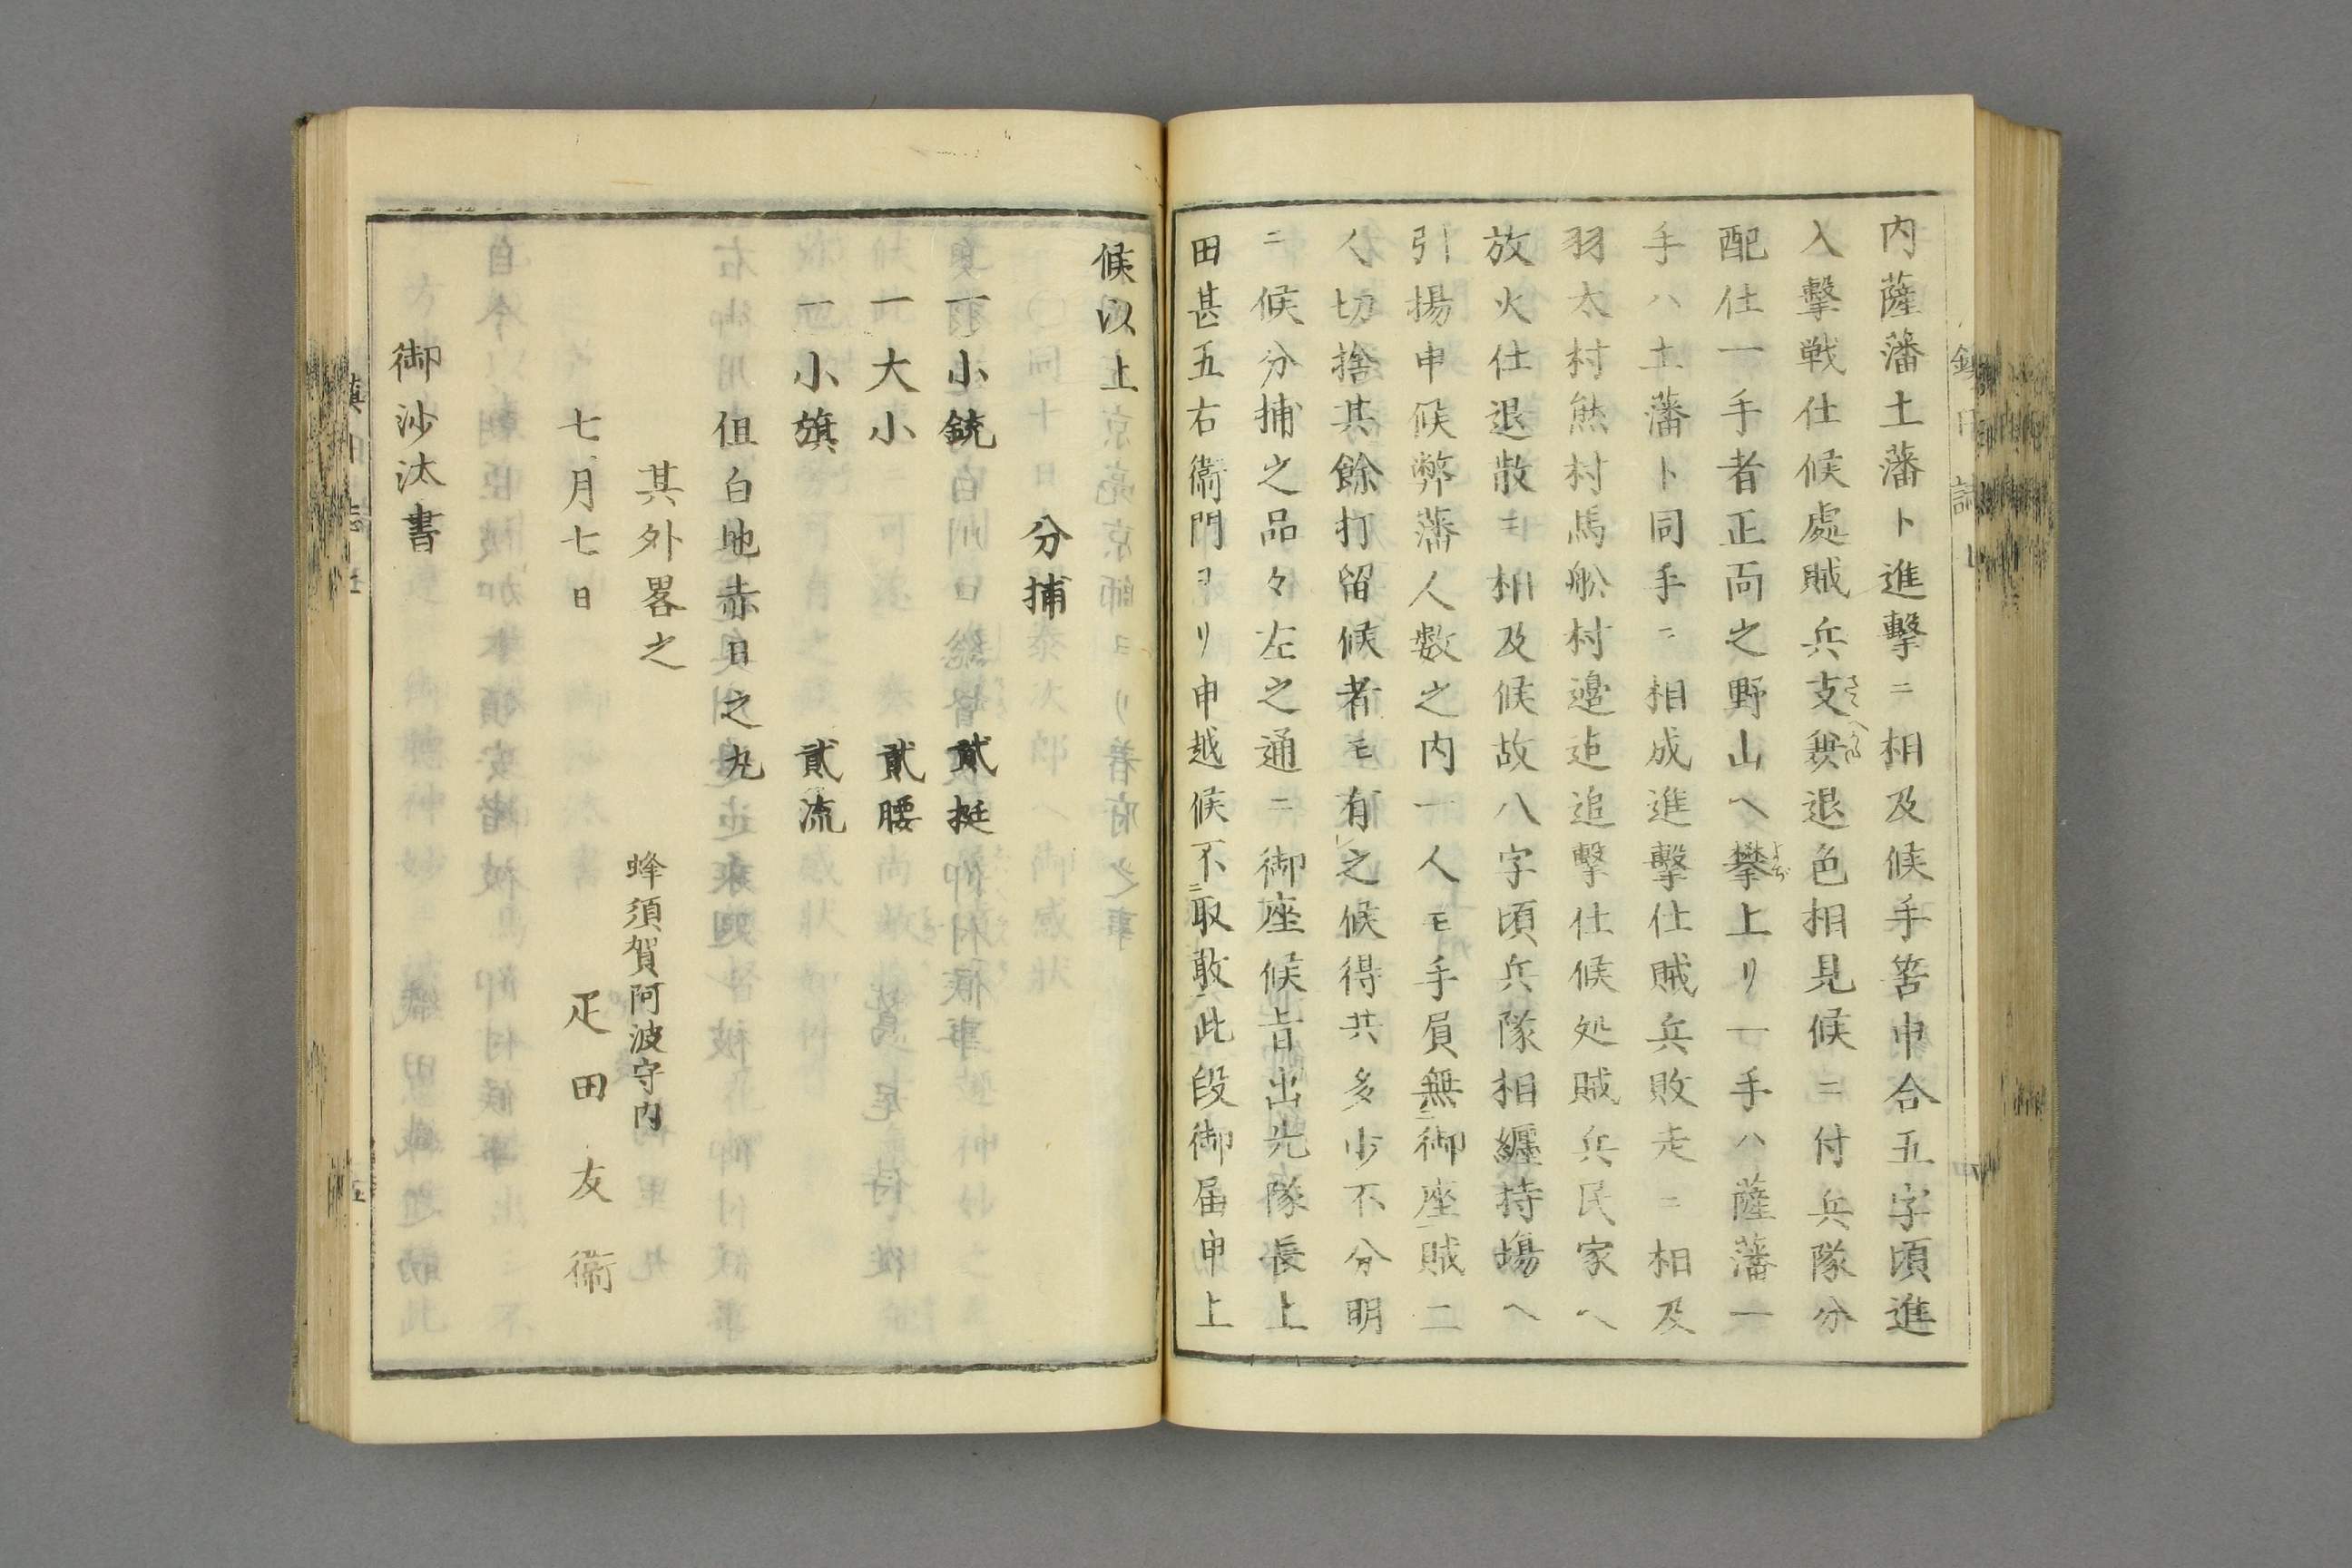 内薩藩土藩ト進擊ニ相及候手筈申合五字頃進
入擊戦仕候處賊兵支兼退色相見候ニ付兵隊分
配仕一手者正面之野山へ攀上リ一手ハ薩藩一
手ハ土藩ト同手ニ相成進擊仕賊兵敗走ニ相及
羽太村熊村馬舩村邊迠追擊仕候処賊兵民家へ
放火仕退散モ相及候故八字頃兵隊相纒持場へ
引揚申候弊藩人数之内一人モ手負無御座賊二
人切捨其餘打留候者モ有之候得共多少不分明
ニ候分捕之品々左之通ニ御座候旨出先隊長上
田甚五右衞門ヨリ申越候不取敢此段御届申上
候以上
分捕
一小銃　貳挺
一大小　貳腰
一小旗　貳流
但白地赤日之丸
其外畧之
蜂須賀阿波守内
七月七日　疋田友衞
御沙汰書